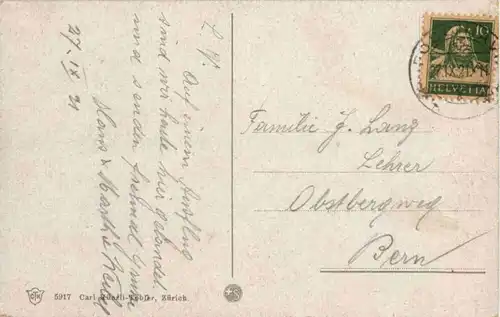 27. IX 21
L. V.
Auf einem Ausflug
sind wir heute hier gelandet
und senden freundl. Grüsse
Hans & Marthi
Familie J. Lang
Lehrer
Obstbergweg
Bern
10
HELVETIA
5917 Carl Künzli-Tobler, Zürich.